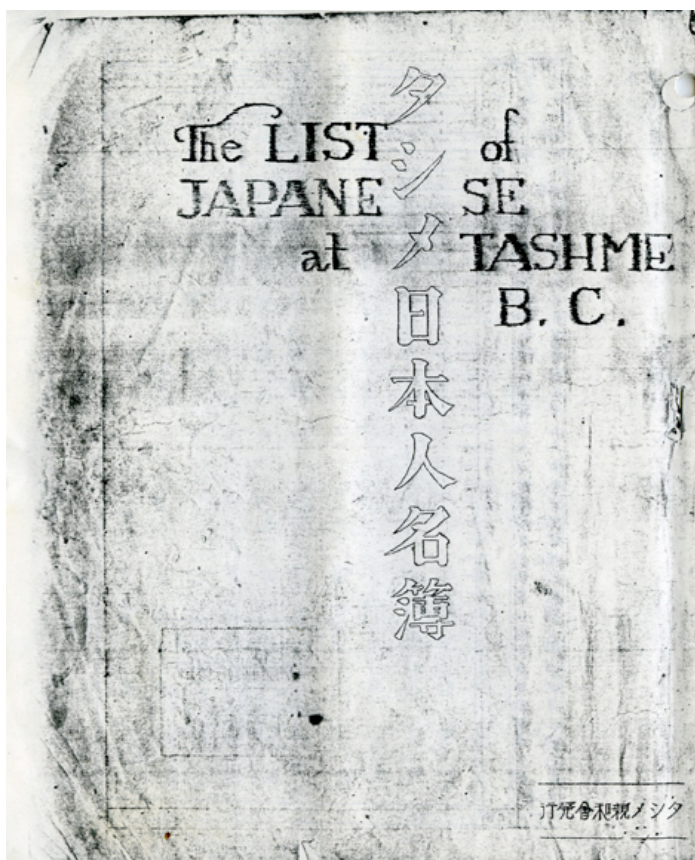 The LIST of
JAPANESE
at TASHME
B. C.
タシメ日本人名簿
タシメ親和會発行